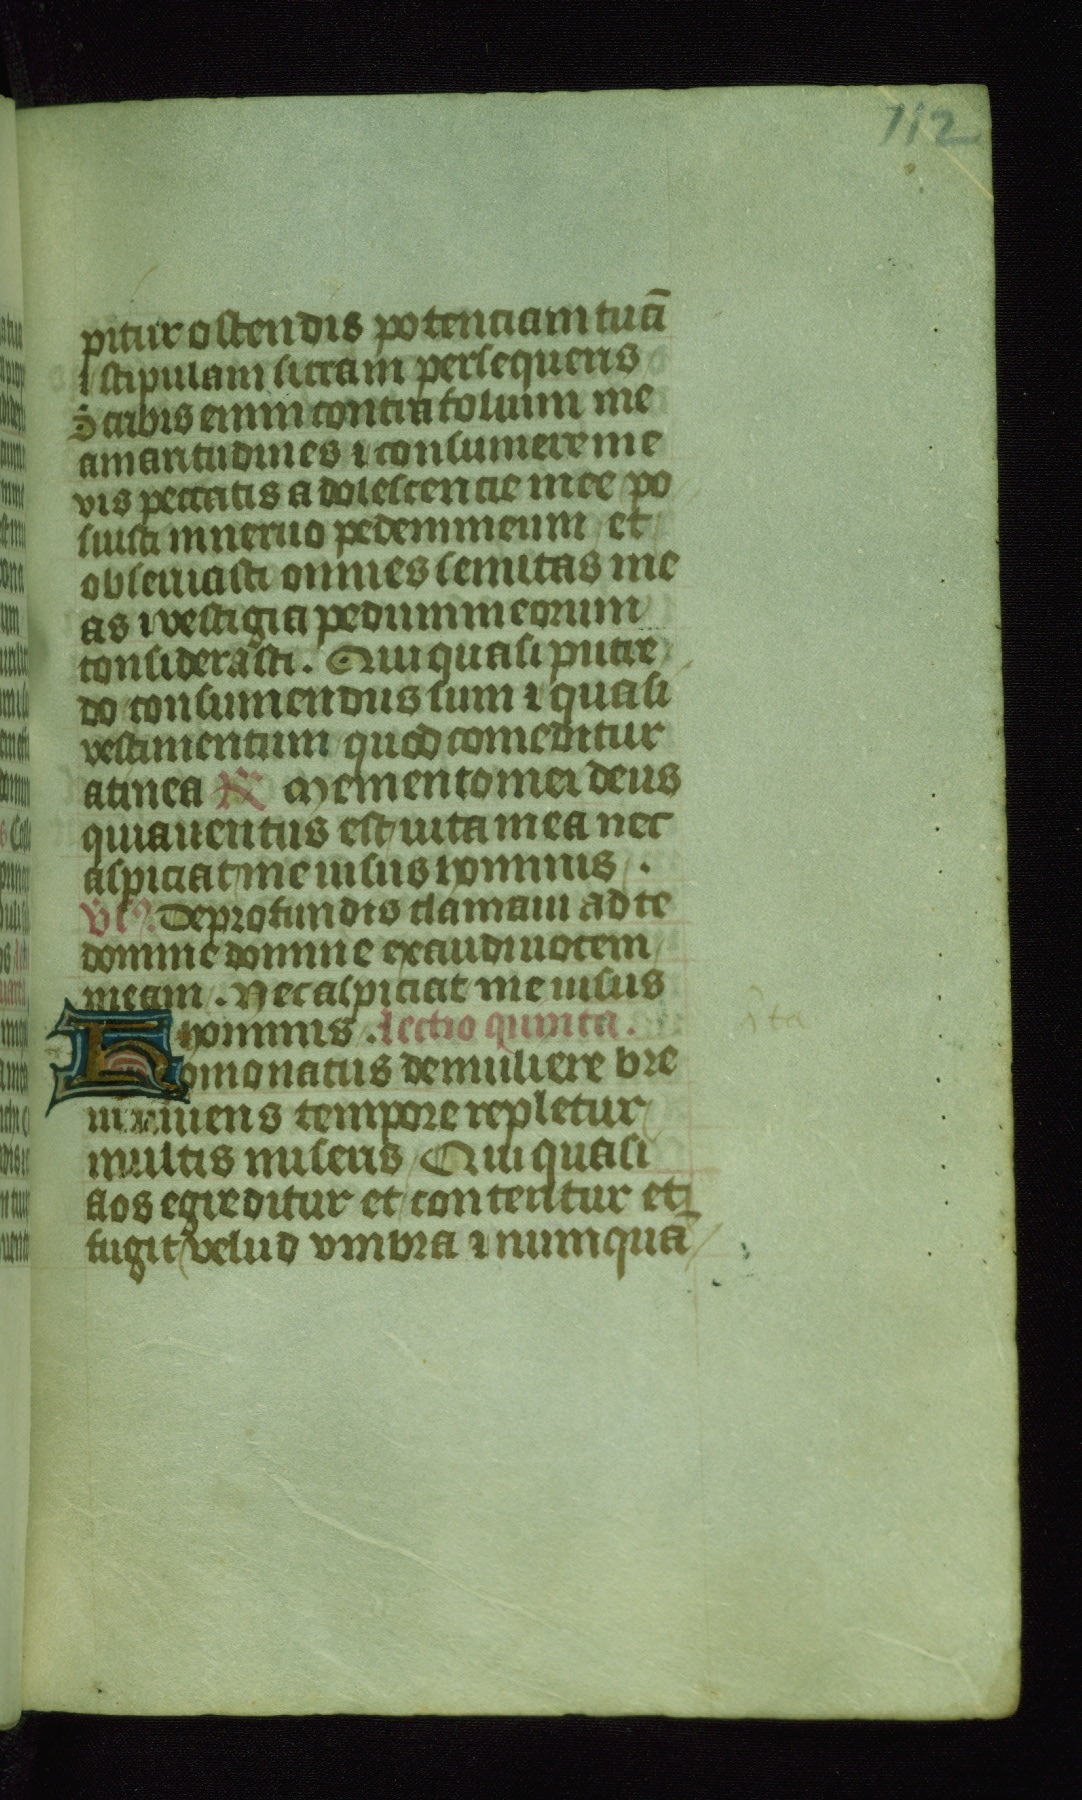 112
pitur ostendis potenciam tuā
⁊ stipulam siccam persequeris
Scribis enim contra foluim me
amaritudines ⁊ consumere me
vis peccatis adolescencie mee po
suisti in neruo pedem meum et
obseruasti omnes semitas me
as ⁊ vestigia pedum meorum
considerasti . Qui quasi putre
do consumendus sum ⁊ quasi
vestimentum quod comeditur
a tinea R̃ Memento mei deus
quia uentus est uita mea nec
aspiciat me uisus hominis .
Vs̃. De profundis clamaui ad te
domine domine exaudi uocem
meam . Nec aspiciat me uisus
hominis . Lectio quinta .
Homo natus de muliere bre
ui uiuens tempore repletur
multis miseriis Qui quasi
flos egreditur et conteritur et
fugit velud vmbra ⁊ numquā